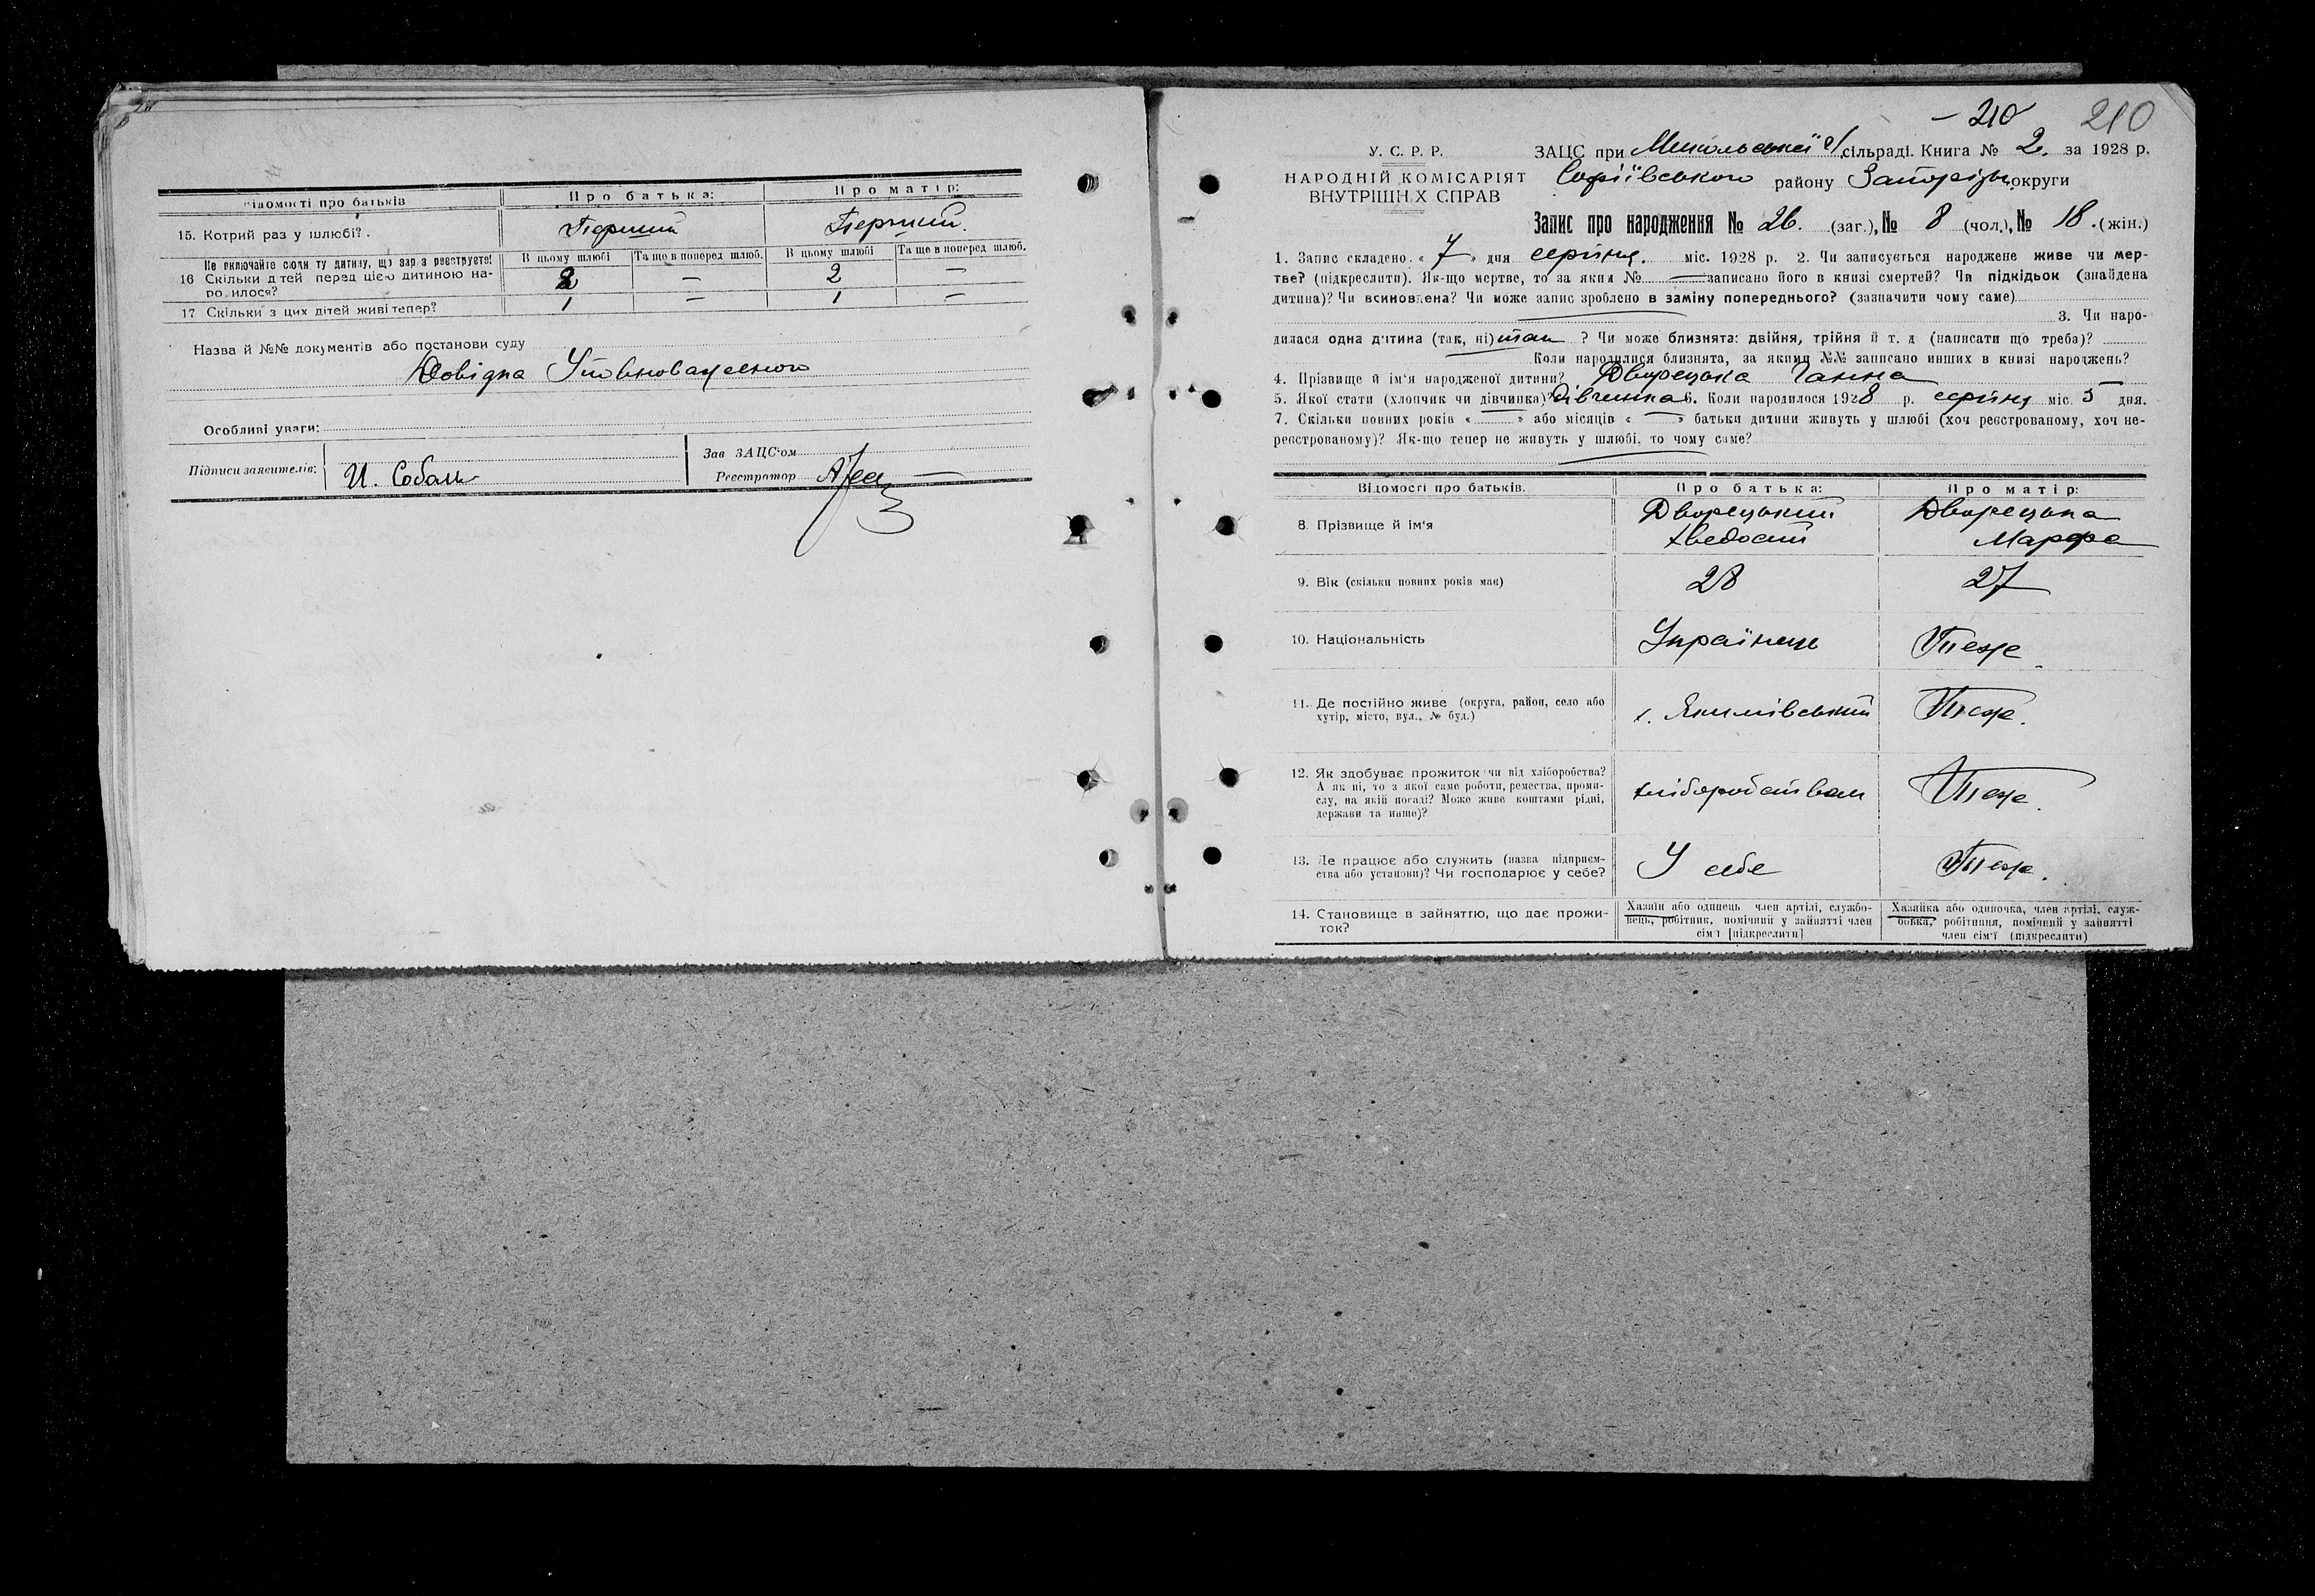 Відомості про батьків
Про батька:
Про матір:
15. Котрий раз у шлюбі?
Перший
Перший.
Не включайте сюди ту дитину, що зараз реєструєте!
16 Скільки дітей перед цією дитиною народилося?
В цьому шлюбі
Та ще в поперед шлюб.
В цьому шлюбі
Та ще в поперед шлюб.
2 — 2 —
17 Скільки з цих дітей живі тепер?
1 — 1 —
Назва й №№ документів або постанови суду
Довідка Уповноваженого
Особливі уваги:
Підписи заявителів:
И. Собаль
Зав ЗАЦС‘ом
Реєстратор
— 210 210
У. С. Р. Р.
НАРОДНІЙ КОМІСАРІЯТ
ВНУТРІШНІХ СПРАВ
ЗАЦС при Микольської с/сільраді. Книга № 2. за 1928 р.
Софіївського району Запоріз. округи
Запис про народження № 26. (заг.), № 8 (чол.), № 18. (жін.)
1. Запис складено. « 7 » дня серпня. міс. 1928 р. 2. Чи записується народжене живе чи мер-
тве? (підкреслити). Як-що мертве, то за яким № — записано його в книзі смертей? Чи підкідьок (знайдена
дитина)? Чи всиновлена? Чи може запис зроблено в заміну попереднього? (зазначити чому саме)
3. Чи наро-
дилася одна дитина (так, ні) так ? Чи може близнята: двійня, трійня й т. д (написати що треба)?
Коли народилися близнята, за якими №№ записано инших в книзі народжень?
4. Прізвище й ім‘я народженої дитини? Дворецька Ганна
5. Якої стати (хлопчик чи дівчинка) дівчинка 6. Коли народилося 1928 р. серпня міс. 5 дня.
7. Скільки повних років « — » або місяців « — » батьки дитини живуть у шлюбі (хоч реєстрованому, хоч не-
реєстрованому)? Як-що тепер не живуть у шлюбі, то чому саме?
Відомості про батьків.
Про батька:
Про матір:
8. Прізвище й ім‘я
Дворецький
Хведосій
Дворецька
Марфа
9. Вік (скільки повних років має)
28
27
10. Національність
Українець
Теж
11. Де постійно живе (округа, район, село або
хутір, місто, вул., № буд.)
х. Якимівський
Теж.
12. Як здобуває прожиток чи від хліборобства?
А як ні, то з якої саме роботи, ремества, проми-
слу, на якій посаді? Може живе коштами рідні,
держави та инше)?
хліборобством
Теж.
13. Де працює або служить (назва підприєм-
ства або установи)? Чи господарює у себе?
У себе
Теж.
14. Становище в зайняттю, що дає прожи-
ток?
Хазяїн або одинець член артілі, службо-
вець, робітник, помічний у зайнятті член
сім‘ї [підкреслити]
Хазяйка або одиночка, член артілі, служ-
бовка, робітниця, помічний у зайнятті
член сім‘ї (підкреслити)